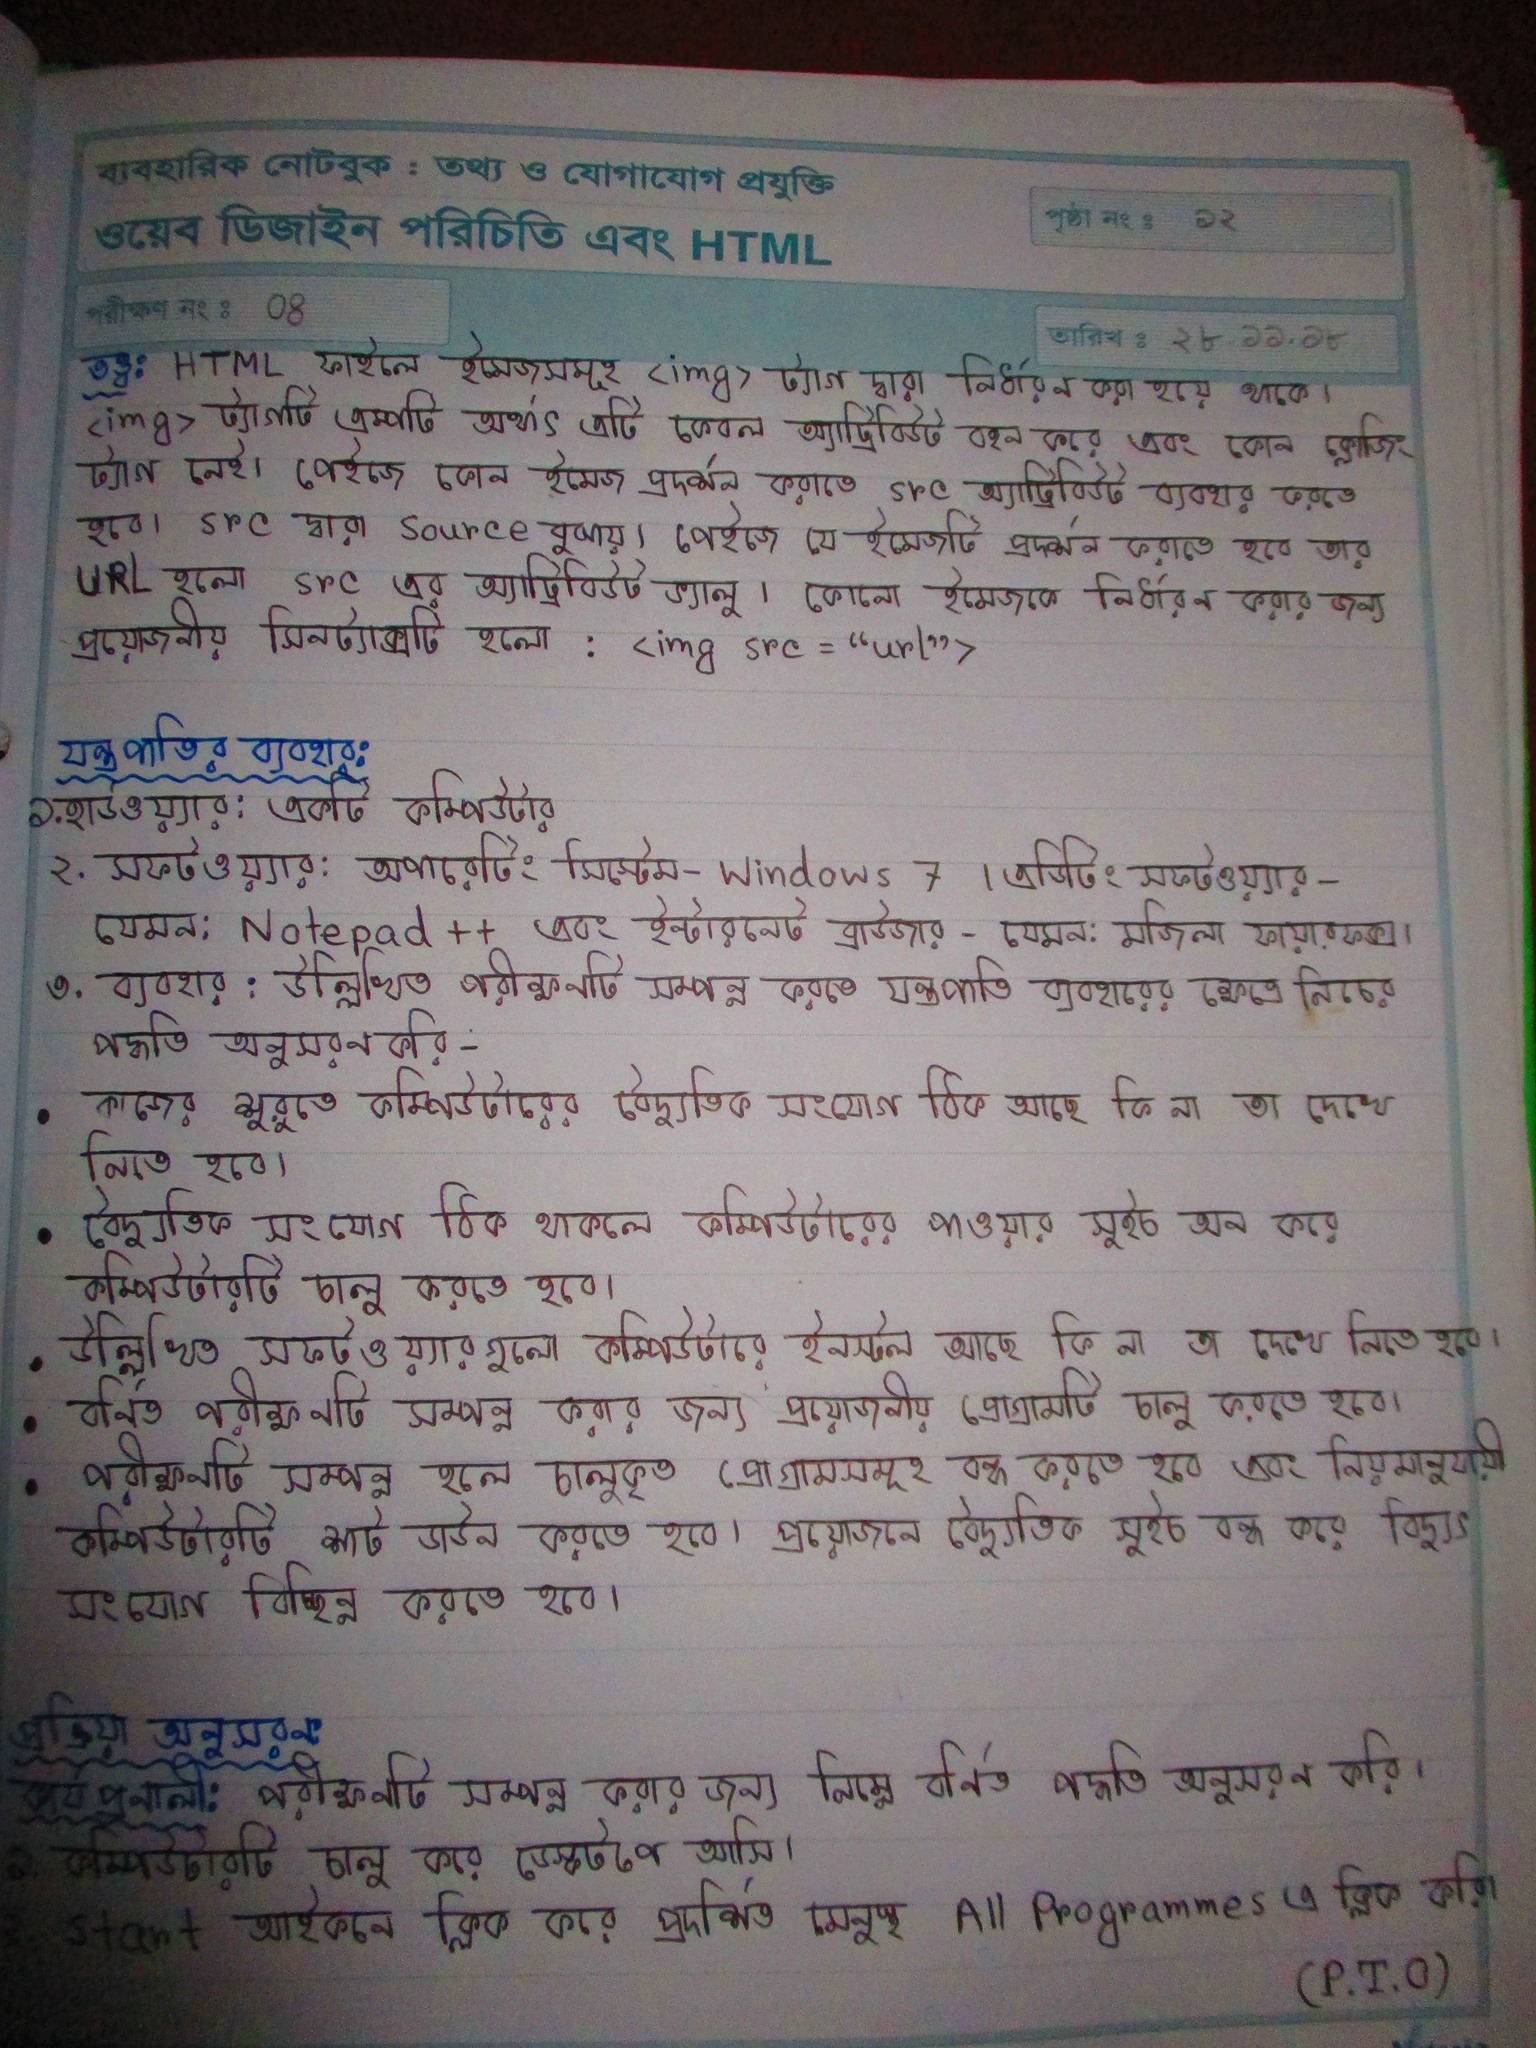 ব্যবহারিক নোটবুক : তথ্য ও যোগাযোগ প্রযুক্তি
ওয়েব ডিজাইন পরিচিতি এবং HTML
পৃষ্ঠা নং : ১২
পরীক্ষণ নং : 08
তারিখ : ২৮.১১.১৮
তত্ত্ব: HTML ফাইলে ইমেজসমূহ <img> ট্যাগ দ্বারা নির্ধারন করা হয়ে থাকে।
<img> ট্যাগটি এম্পটি অর্থাৎ এটি কেবল অ্যাট্রিবিউট বহন করে এবং কোন ক্লোজিং
ট্যাগ নেই। পেইজে কোন ইমেজ প্রদর্শন করাতে src অ্যাট্রিবিউট ব্যবহার করতে
হবে। src দ্বারা source বুঝায়। পেইজে যে ইমেজটি প্রদর্শন করাতে হবে তার
URL হলো src এর অ্যাট্রিবিউট ভ্যালু। কোনো ইমেজকে নির্ধারন করার জন্য
প্রয়োজনীয় সিনট্যাক্সটি হলো : <img src = “url”>
যন্ত্রপাতির ব্যবহার:
১. হার্ডওয়্যার: একটি কম্পিউটার
২. সফটওয়্যার: অপারেটিং সিস্টেম- Windows 7 । এডিটিং সফটওয়্যার -
যেমন: Notepad ++ এবং ইন্টারনেট ব্রাউজার - যেমন: মজিলা ফায়ারফক্স।
৩. ব্যবহার : উল্লিখিত পরীক্ষনটি সম্পন্ন করতে যন্ত্রপাতি ব্যবহারের ক্ষেত্রে নিচের
পদ্ধতি অনুসরন করি -
• কাজের শুরুতে কম্পিউটারের বৈদ্যুতিক সংযোগ ঠিক আছে কি না তা দেখে
নিতে হবে।
• বৈদ্যুতিক সংযোগ ঠিক থাকলে কম্পিউটারের পাওয়ার সুইচ অন করে
কম্পিউটারটি চালু করতে হবে।
• উল্লিখিত সফটওয়্যারগুলো কম্পিউটারে ইনস্টল আছে কি না তা দেখে নিতে হবে।
• বর্নিত পরীক্ষনটি সম্পন্ন করার জন্য প্রয়োজনীয় প্রোগ্রামটি চালু করতে হবে।
• পরীক্ষনটি সম্পন্ন হলে চালুকৃত প্রোগ্রামসমূহ বন্ধ করতে হবে এবং নিয়মানুযায়ী
কম্পিউটারটি শাট ডাউন করতে হবে। প্রয়োজনে বৈদ্যুতিক সুইচ বন্ধ করে বিদ্যুৎ
সংযোগ বিচ্ছিন্ন করতে হবে।
প্রক্রিয়া অনুসরন:
কার্যপ্রনালী: পরীক্ষনটি সম্পন্ন করার জন্য নিম্নে বর্নিত পদ্ধতি অনুসরন করি।
১. কম্পিউটারটি চালু করে ডেস্কটপে আসি।
২. start আইকনে ক্লিক করে প্রদর্শিত মেনুস্থ All Programmes এ ক্লিক করি।
(P.T.O)